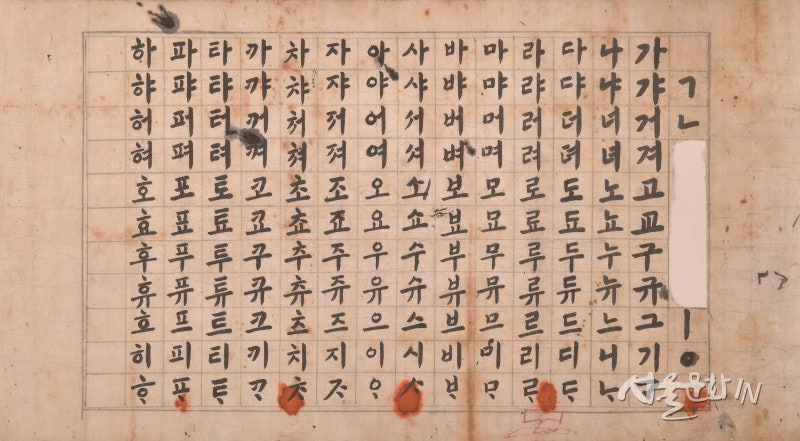 ㄱ ㄴ ㅣ ㆁ
가 갸 거 겨 고 교 구 규 그 기 ᄀᆞ
나 냐 너 녀 노 뇨 누 뉴 느 니 ᄂᆞ
다 댜 더 뎌 도 됴 두 듀 드 디 ᄃᆞ
라 랴 러 려 로 료 루 류 르 리 ᄅᆞ
마 먀 머 며 모 묘 무 뮤 므 미 ᄆᆞ
바 뱌 버 벼 보 뵤 부 뷰 브 비 ᄇᆞ
사 샤 서 셔 소 쇼 수 슈 스 시 ᄉᆞ
아 야 어 여 오 요 우 유 으 이 ᄋᆞ
자 쟈 저 져 조 죠 주 쥬 즈 지 ᄌᆞ
차 챠 처 쳐 초 쵸 추 츄 츠 치 ᄎᆞ
카 캬 커 켜 코 쿄 쿠 큐 크 키 ᄏᆞ
타 탸 터 텨 토 툐 투 튜 트 티 ᄐᆞ
파 퍄 퍼 펴 포 표 푸 퓨 프 피 ᄑᆞ
하 햐 허 혀 호 효 후 휴 흐 히 ᄒᆞ
서울문화IN